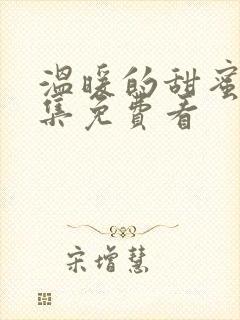 温暖的甜蜜
集免费看
宋增慧